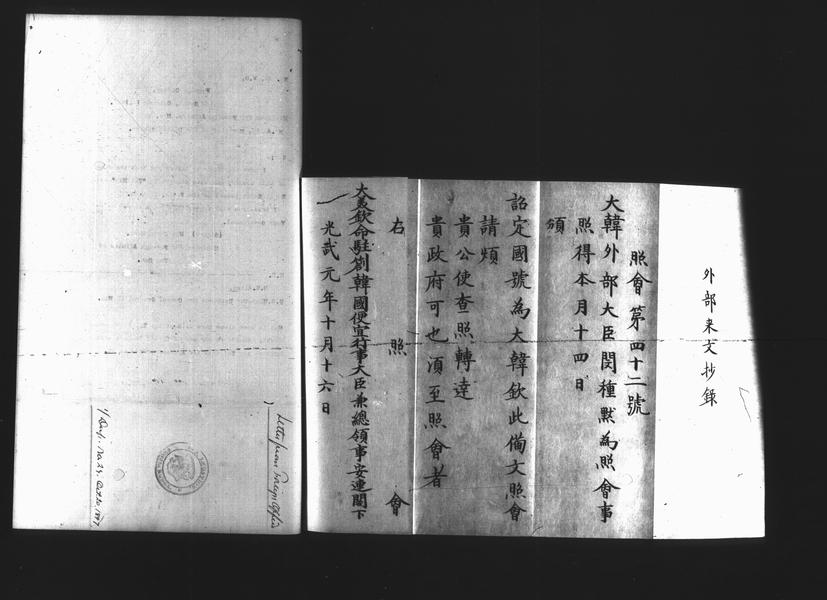 外部来文抄錄
照會第四十二號
大韓外部大臣閔種默為照會事
照得本月十四日
頒
詔定國號為大韓欽此備文照會
請煩
貴公使查照轉達
貴政府可也須至照會者
右照會
大美欽命駐劄韓國便宜行事大臣兼總領事安連閣下
光武元年十月十六日
Letter from Foreign Office